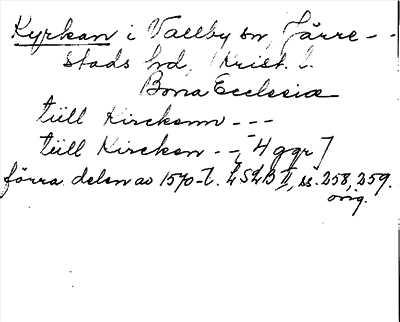 Kyrkan i Vallby sn, Järre--
stads hd, Krist. l.
Bona Ecclesiæ
tiill Kirckenn ---
tiill Kircken --, [4 ggr]
förra delen av 1570-t. LSLB II, ss. 258, 259.
orig.